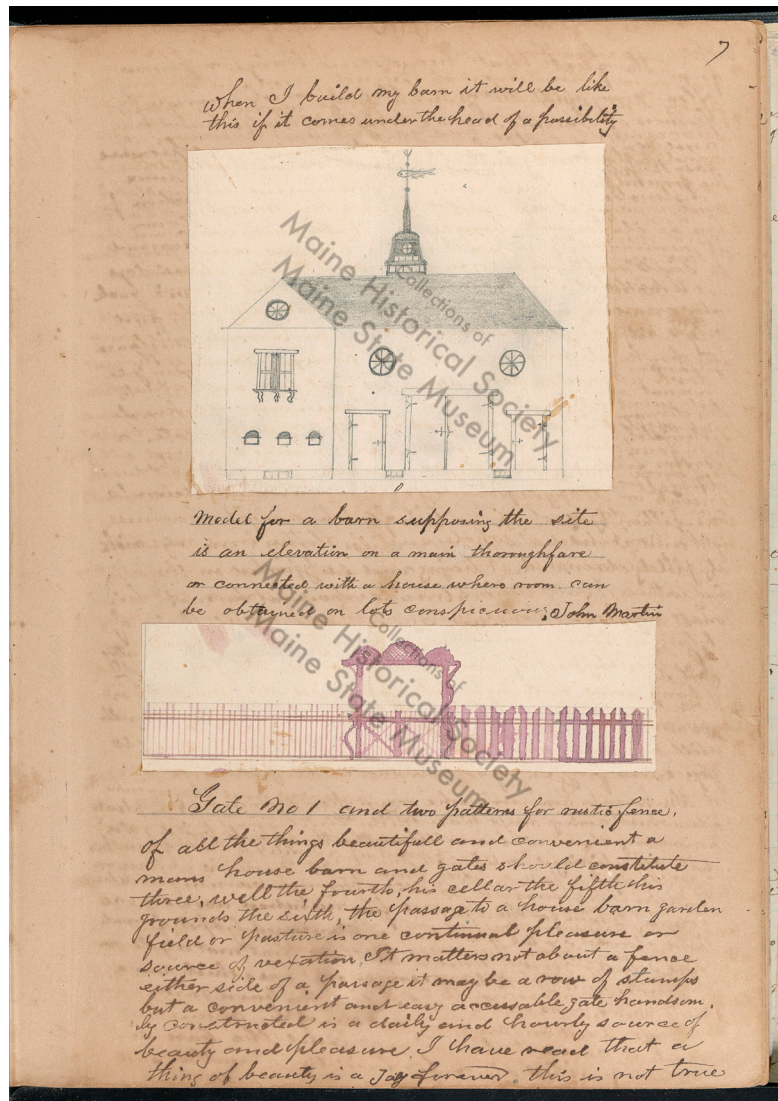 7
when I build my barn it will be like
this if it comes under the head of a possibility
Collections of
Maine Historical Society
Maine State Museum
Model for a barn supposing the site
is an elevation on a main thoroughfare
or connected with a house where room can
be obtained on lots conspicuous; John Martin
Collections of
Maine Historical Society
Maine State Museum
Gate No 1 and two patterns for rustic fence.
of all the things beautifull and convenient a
mans house barn and gates should constitute
three, well the fourth, his cellar the fifth his
grounds the sixth, the passage to a house barn garden
field or pasture is one continual pleasure or
source of vexation, It matters not about a fence
either side of a passage it may be a row of stumps
but a convenient and easy accessable gate handsom.
ly constructed is a daily and hourly source of
beauty and pleasure, I have read that a
thing of beauty is a Joy forever this is not true